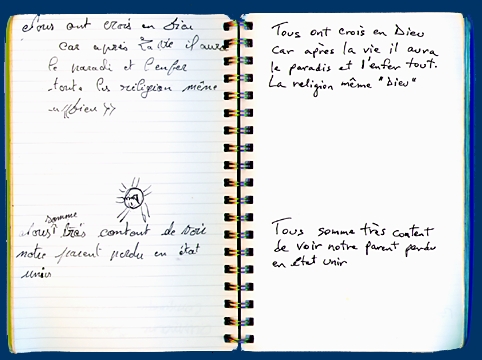 Tous ont crois en Dieu
car après la vie il aura
le paradi et l'enfer
toute les réligion même
"Dieu"
somme
Tous très contant de voir
notre parent perdu en état
unir
Tous ont crois en Dieu
car après la vie il aura
le paradis et l'enfer tout.
La religion même "Dieu"
Tous somme très content
de voir notre parent perdu
en état unir